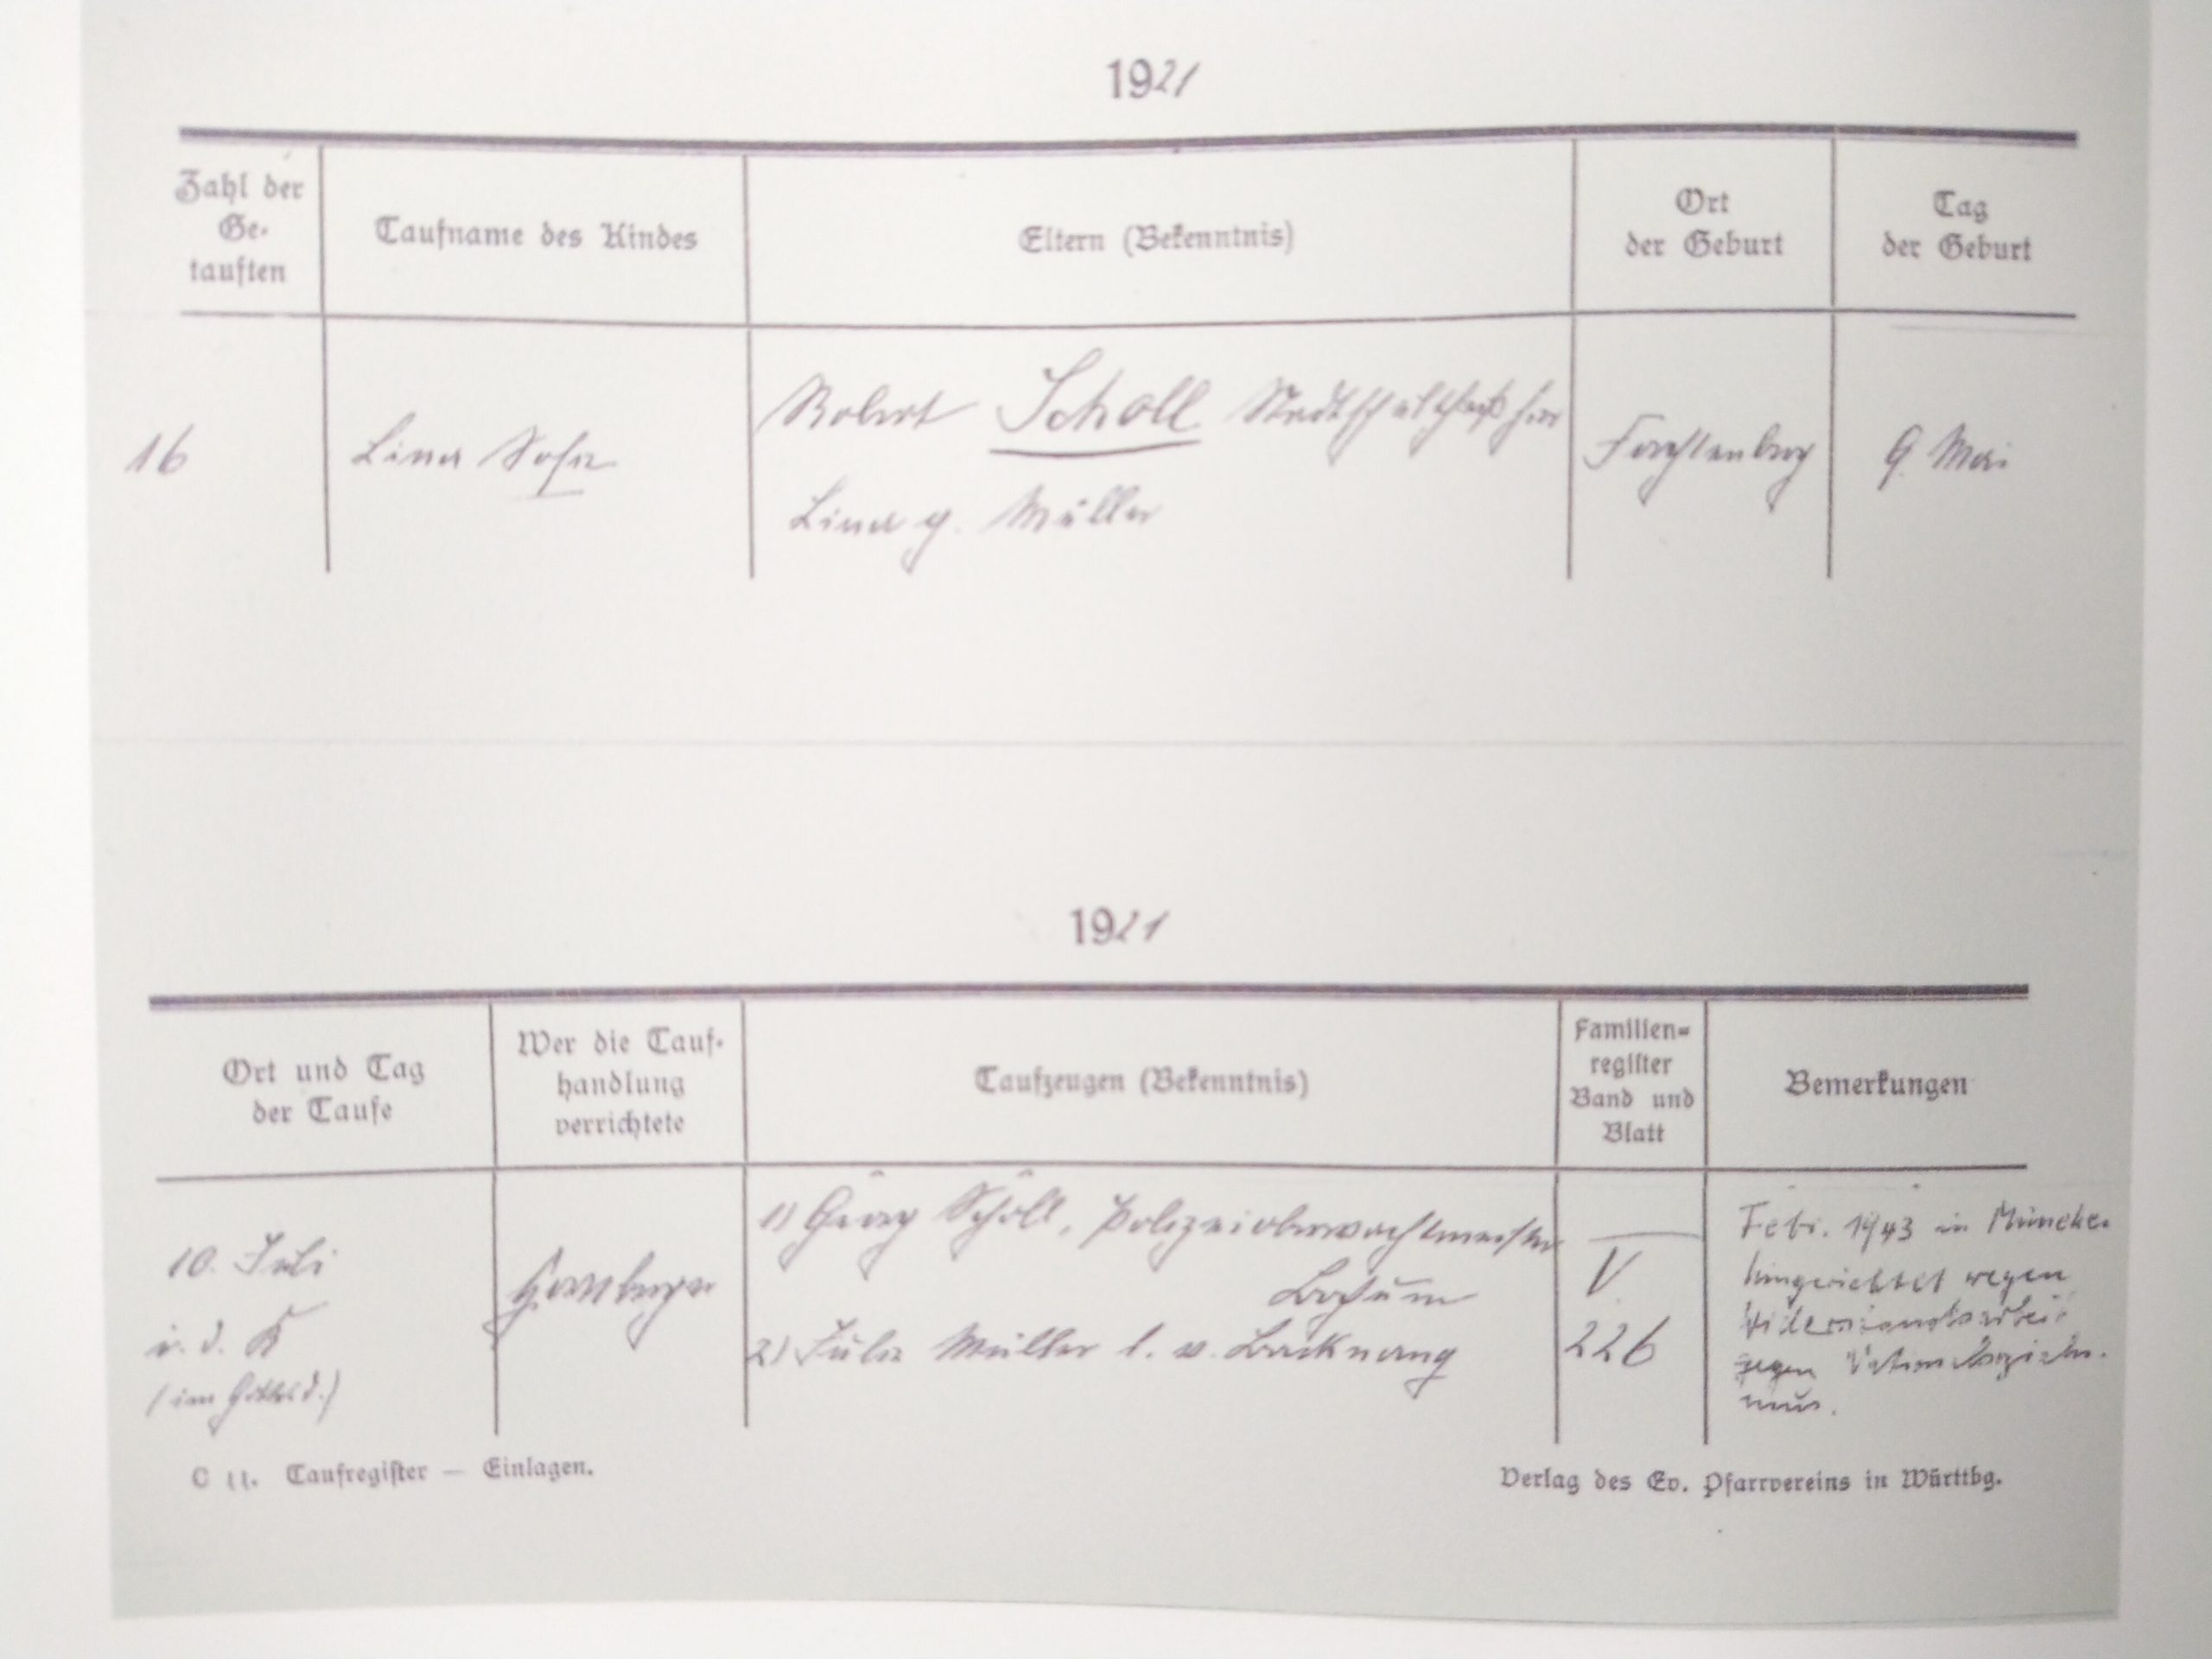 1921
Zahl der
Ge-
tauften
Taufname des Kindes
Eltern (Bekenntnis)
Ort
der Geburt
Tag
der Geburt
16
Lina Sofie
Robert Scholl Stadtschultheiß hier
Lina g. Müller
Forchtenberg
9. Mai
1921
Ort und Tag
der Taufe
Wer die Tauf-
handlung
verrichtete
Taufzeugen (Bekenntnis)
Familien-
register
Band und
Blatt
Bemerkungen
10. Juli
i. d. K
(im Gottesd.)
1) Georg Scholl, Polizeioberwachtmeister
Bochum
2) Julie Müller l. v. Backnang
V
226
Febr. 1943 in München
hingerichtet wegen
Widerstandsarbeit
gegen Nationalsozialis-
mus.
C 11. Taufregister — Einlagen.
Verlag des Ev. Pfarrvereins in Württbg.